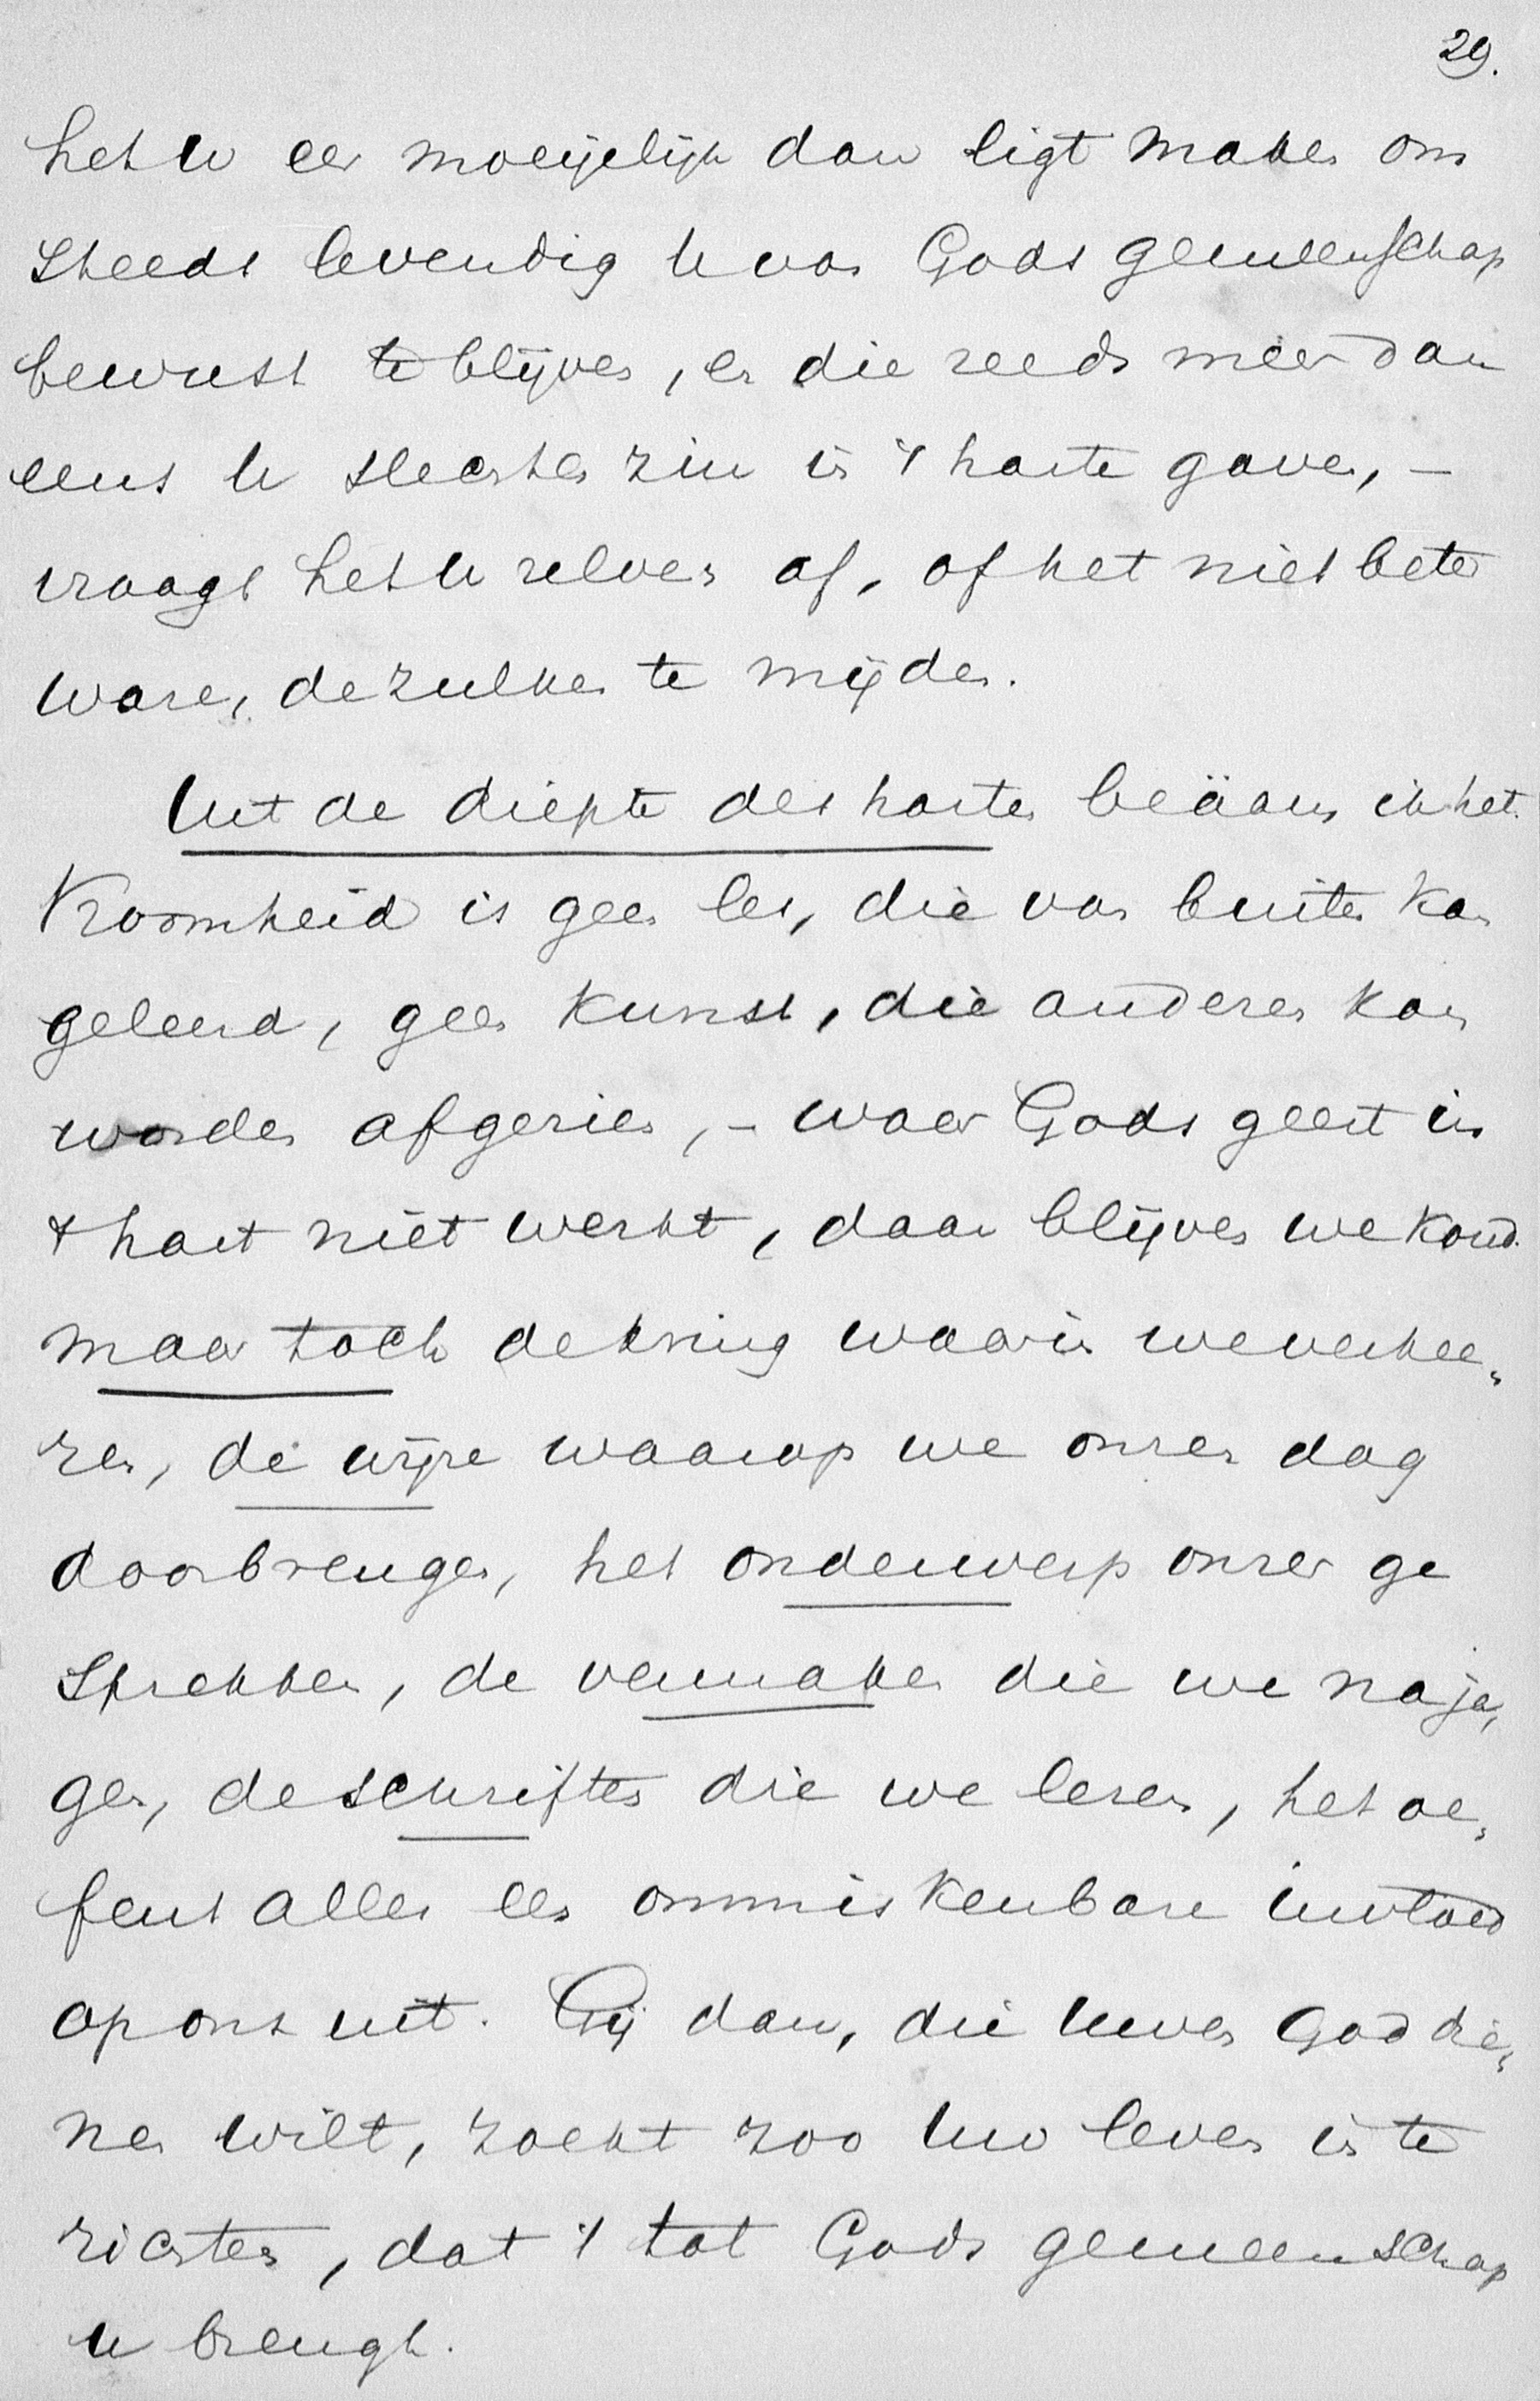 29.
het U eer moeijelijk dan ligt maken om
steeds levendig U van Gods gemeenschap
bewust te blijven, en die reeds meer dan
eens U slechten zin in 't harte gaven, -
vraagt het U zelven af, of het niet beter
ware, dezulken te mijden.
Uit de diepte des harten beäam ik het.
Vroomheid is geen les, die van buiten kan
geleerd, geen kunst, die anderen kan
worden afgezien, - waar Gods geest in
't hart niet werkt, daar blijven we koud.
maar toch de kring waarin we verkee„
ren, de wijze waarop we onzen dag
doorbrengen, het onderwerp onzer ge
sprekken, de vermaken die we naja„
gen, de schriften die we lezen, het oe„
fent alles een onmiskenbare invloed
op ons uit. Gij dan, die Uwen God die„
nen wilt, zoekt zoo Uw leven in te
richten, dat 't tot Gods gemeenschap
U brengt.